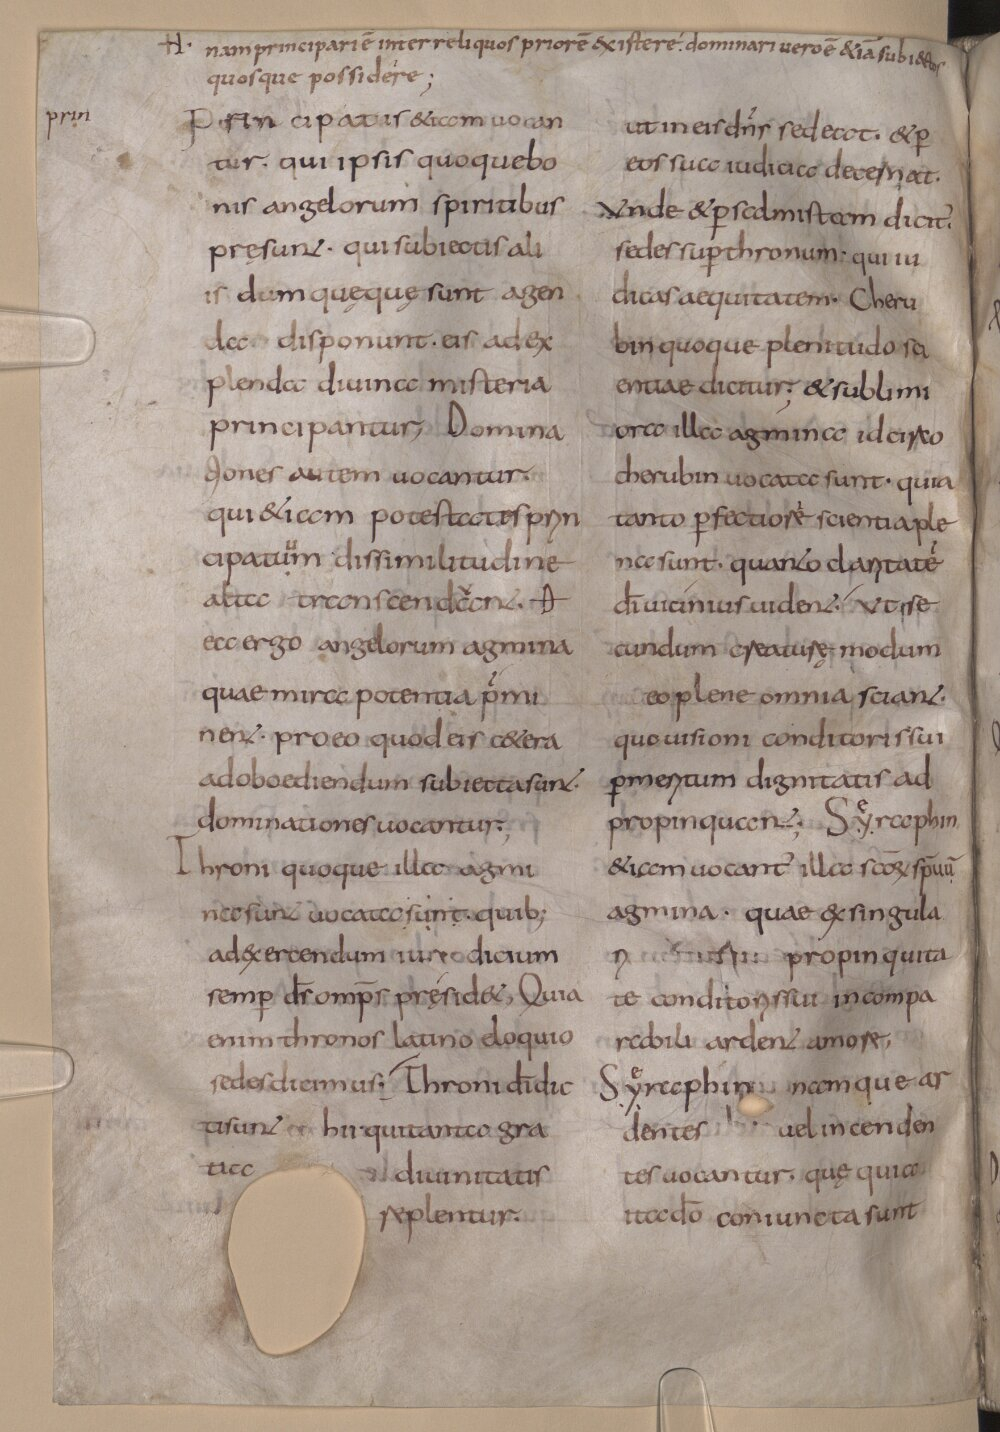 H· nam principari ē inter reliquos priorē existere. dominari uero ē &iā subiectos
quosque possidére;
prin
Prin cipatus &iam uocan
tur. qui ipsis quoque bo
nis angelorum spiritibus
pręsun&. qui subiectis ali
is dum quęquę sunt agen
da disponunt. eis ad ex
plenda diuina misteria
principantur; Domina
tiones autem uocantur.
qui &iam potestates prin
cipatuum dissimilitudine
alta transcendan&. H
ea ergo angelorum agmina
quae mira potentia p̄mi
nen&. pro eo quod eis c&era
ad oboediendum subiecta sun&.
dominationes uocantur;
Throni quoque illa agmi
na sun& uocata sunt. quib;
ad exercendum iudicium
semp d̄s omp̄s pręsid&; Quia
enim thronos latino eloquio
sedes dicimus; Throni d̄i dic
ti sun& hii qui tanta gra
tia diuinitatis
replentur.
ut in eis dn̄s sedeat. & p
eos sua iudicia decernat.
Vnde & p salmistam dicit̄.
sedes sup thronum. qui iu
dicas aequitatem. Cheru
bin quoque plenitudo sci
entiae dicitur; & sublimi
ora illa agmina idcirco
cherubin uocata sunt. quia
tanto p fectiorē scientia ple
na sunt. quan&o claritatē
d̄i uicinius uiden&. Vt se
cundum creaturę modum
eo plene omnia scian&.
quo uisioni conditoris sui
p meritum dignitatis ad
propinquan&; Syeraphin
&iam uocant̄ illa scōꝝ sp̄uū
agmina. quae ex singula
ri propinquita
te conditoris sui incompa
rabili arden& amore;
Syeraphin namque ar
dentes uel incenden
tes uocantur. quę quia
ita d̄o coniuncta sunt